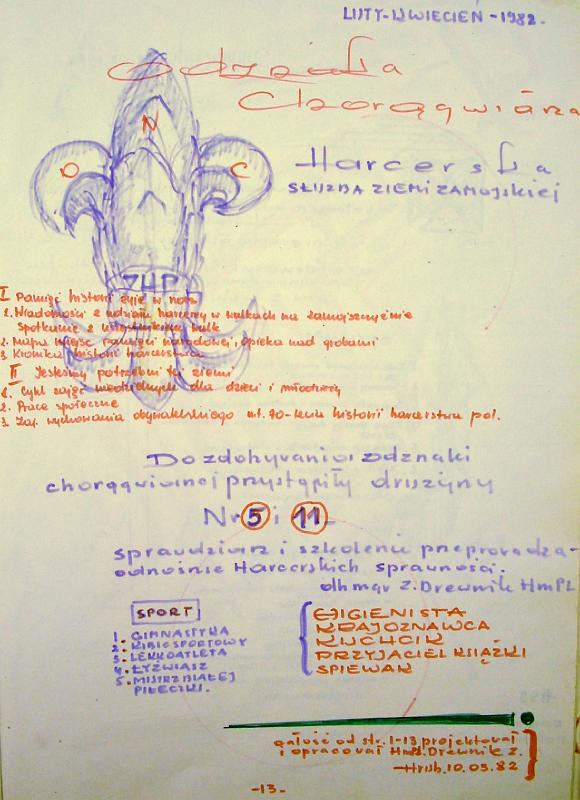 LUTY-KWIECIEŃ-1982.
Odznaka
Chorągwiana
N
O
C
Harcerska
SŁUŻBA ZIEMI ZAMOJSKIEJ
ZHP
I Pamięć historii żyje w nas
1. Wiadomości z udziału harcerzy w walkach na zamojszczyźnie
Spotkanie z uczestnikami walk
2. Mapa miejsc pamięci narodowej, opieka nad grobami
3. Kronika historii harcerstwa
II Jesteśmy potrzebni tej ziemi
1. Cykl zajęć niedzielnych dla dzieci i młodzieży
2. Prace społeczne
3. Zaj. wychowania obywatelskiego n.t. 70-lecia historii harcerstwa pol.
Do zdobywania odznaki
chorągwianej przystąpiły drużyny
Nr 5 i 11
sprawdziany i szkolenie przeprowadza-
odnośnie Harcerskich sprawności.
dh mgr Z. Drewnik HmPL
SPORT
1. GIMNASTYKA
2. KIBIC SPORTOWY
3. LEKKOATLETA
4. ŁYŻWIARZ
5. MISTRZ BIAŁEJ
PIŁECZKI.
HIGIENISTA
KRAJOZNAWCA
KUCHCIK
PRZYJACIEL KSIĄŻKI
ŚPIEWAK
całość od str. 1-13 projektował
i opracował HmPL Drewnik Z.
Hrub. 10.05.82
-13-